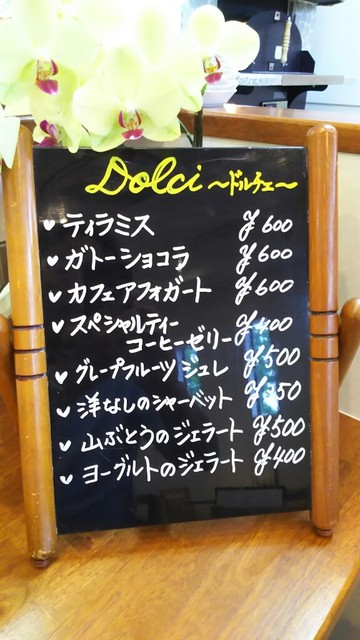 Dolci ～ドルチェ～
♥ ティラミス ¥600
♥ ガトーショコラ ¥600
♥ カフェアフォガート ¥600
♥ スペシャルティー
コーヒーゼリー ¥400
♥ グレープフルーツ ジュレ ¥500
♥ 洋なしのシャーベット
♥ 山ぶとうのジェラート ¥500
♥ ヨーグルトのジェラート ¥400